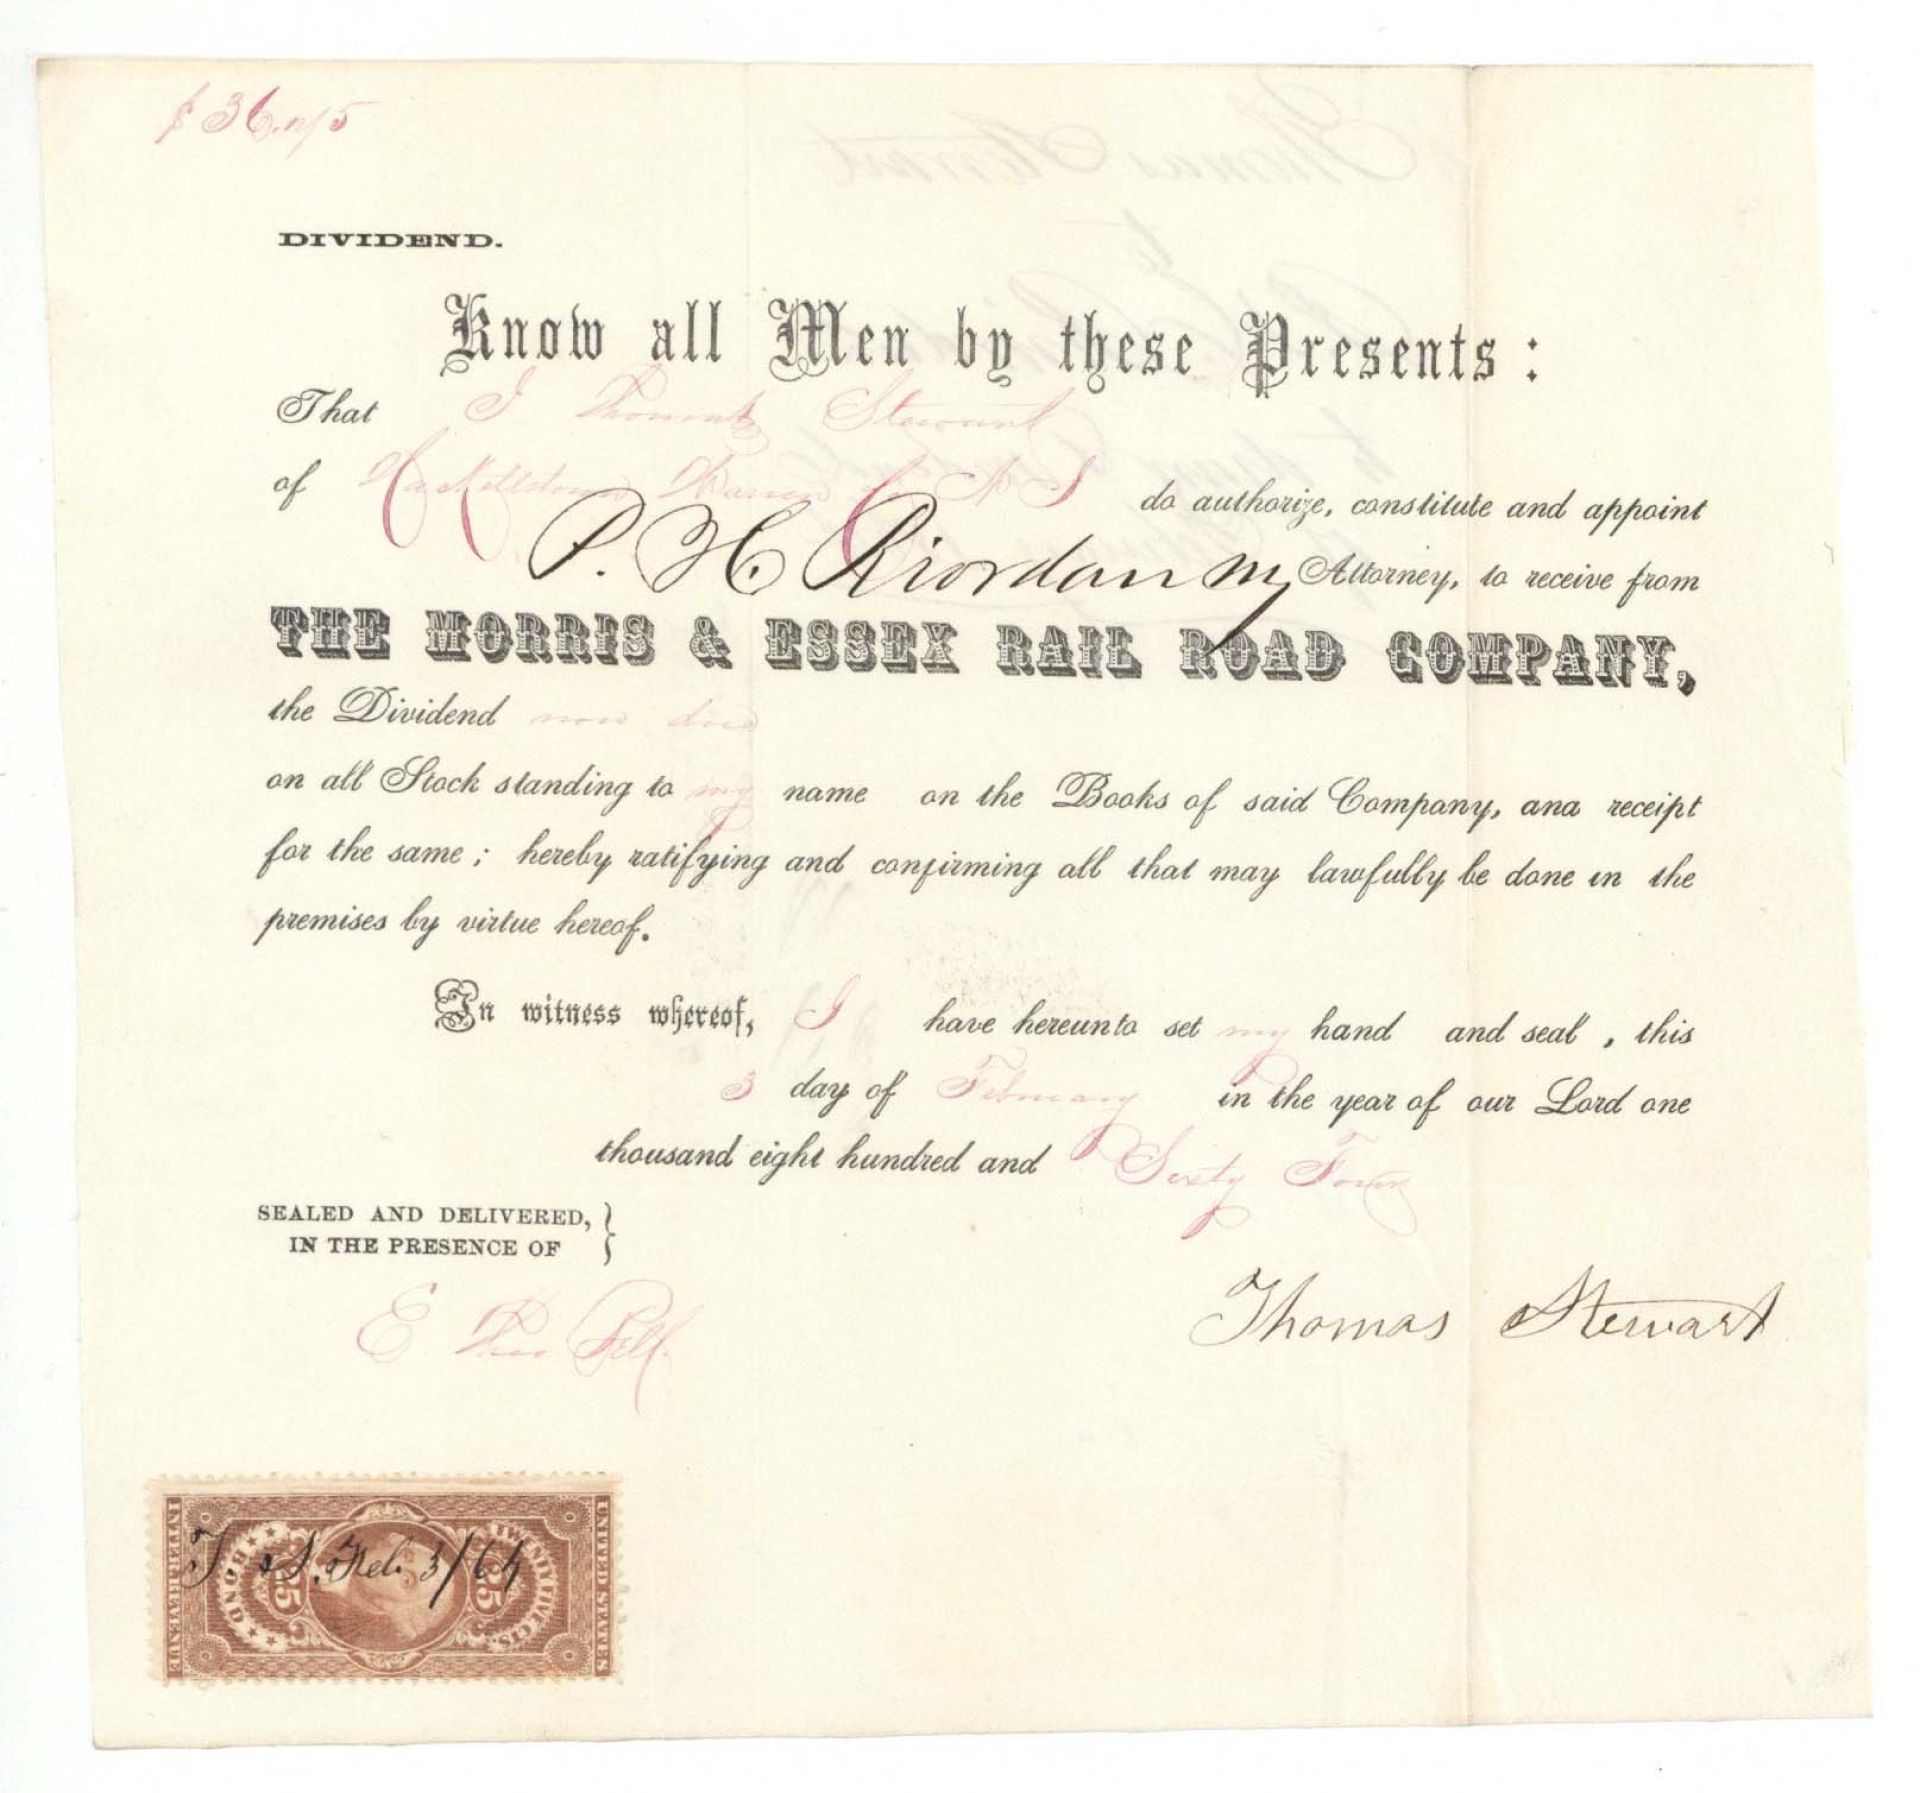 $ 36.75
DIVIDEND.
Know all Men by these Presents:
That I Thomas Stewart
of Hackettstown Warren Co N J do authorize, constitute and appoint
P. H. Riordan my Attorney, to receive from
THE MORRIS & ESSEX RAIL ROAD COMPANY,
the Dividend now due
on all Stock standing to my name on the Books of said Company, and receipt
for the same; hereby ratifying and confirming all that may lawfully be done in the
premises by virtue hereof.
In witness whereof, I have hereunto set my hand and seal, this
3 day of February in the year of our Lord one
thousand eight hundred and Sixty Four
SEALED AND DELIVERED,
IN THE PRESENCE OF
E
Thomas Stewart
UNITED STATES
INTER. REVENUE
TWENTY FIVE CTS.
25 25
BOND
T. S. Feb. 3/64